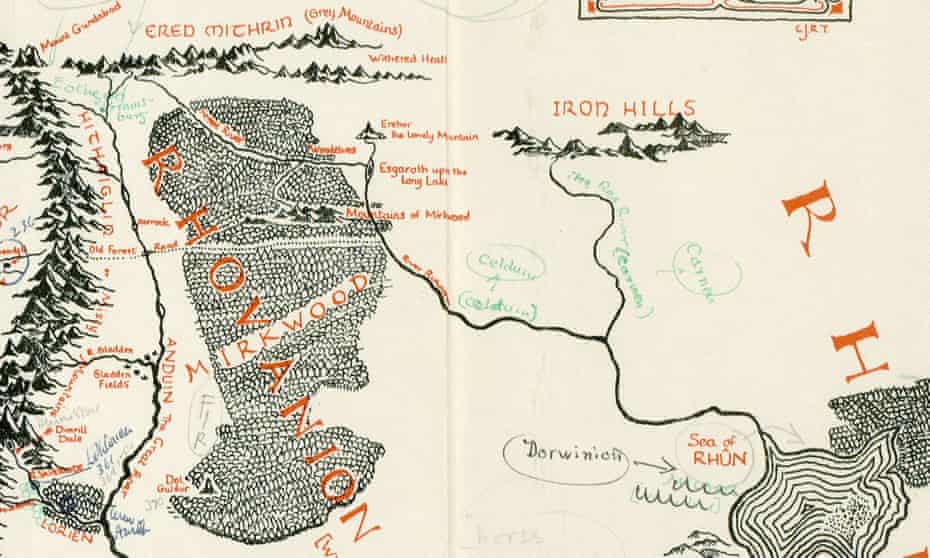 C.J.R.T.
Mount Gundabad
ERED MITHRIN (Grey Mountains)
Withered Heath
IRON HILLS
HITHAEGLIR
Forest River
Erebor
The Lonely Mountain
Woodelves
Esgaroth upon the
Long Lake
The Red River (Carnen)
Carrock
Mountains of Mirkwood
Old Forest Road
Misty Mountains
River Running
Celduin
(Celduin)
Carnen
RHOVANION
MIRKWOOD
RH
R. Gladden
Gladden
Fields
ANDUIN The Great River
FIR
Dimrill
Dale
Dorwinion
Sea of
RHÛN
Dol
Guldur
LORIEN